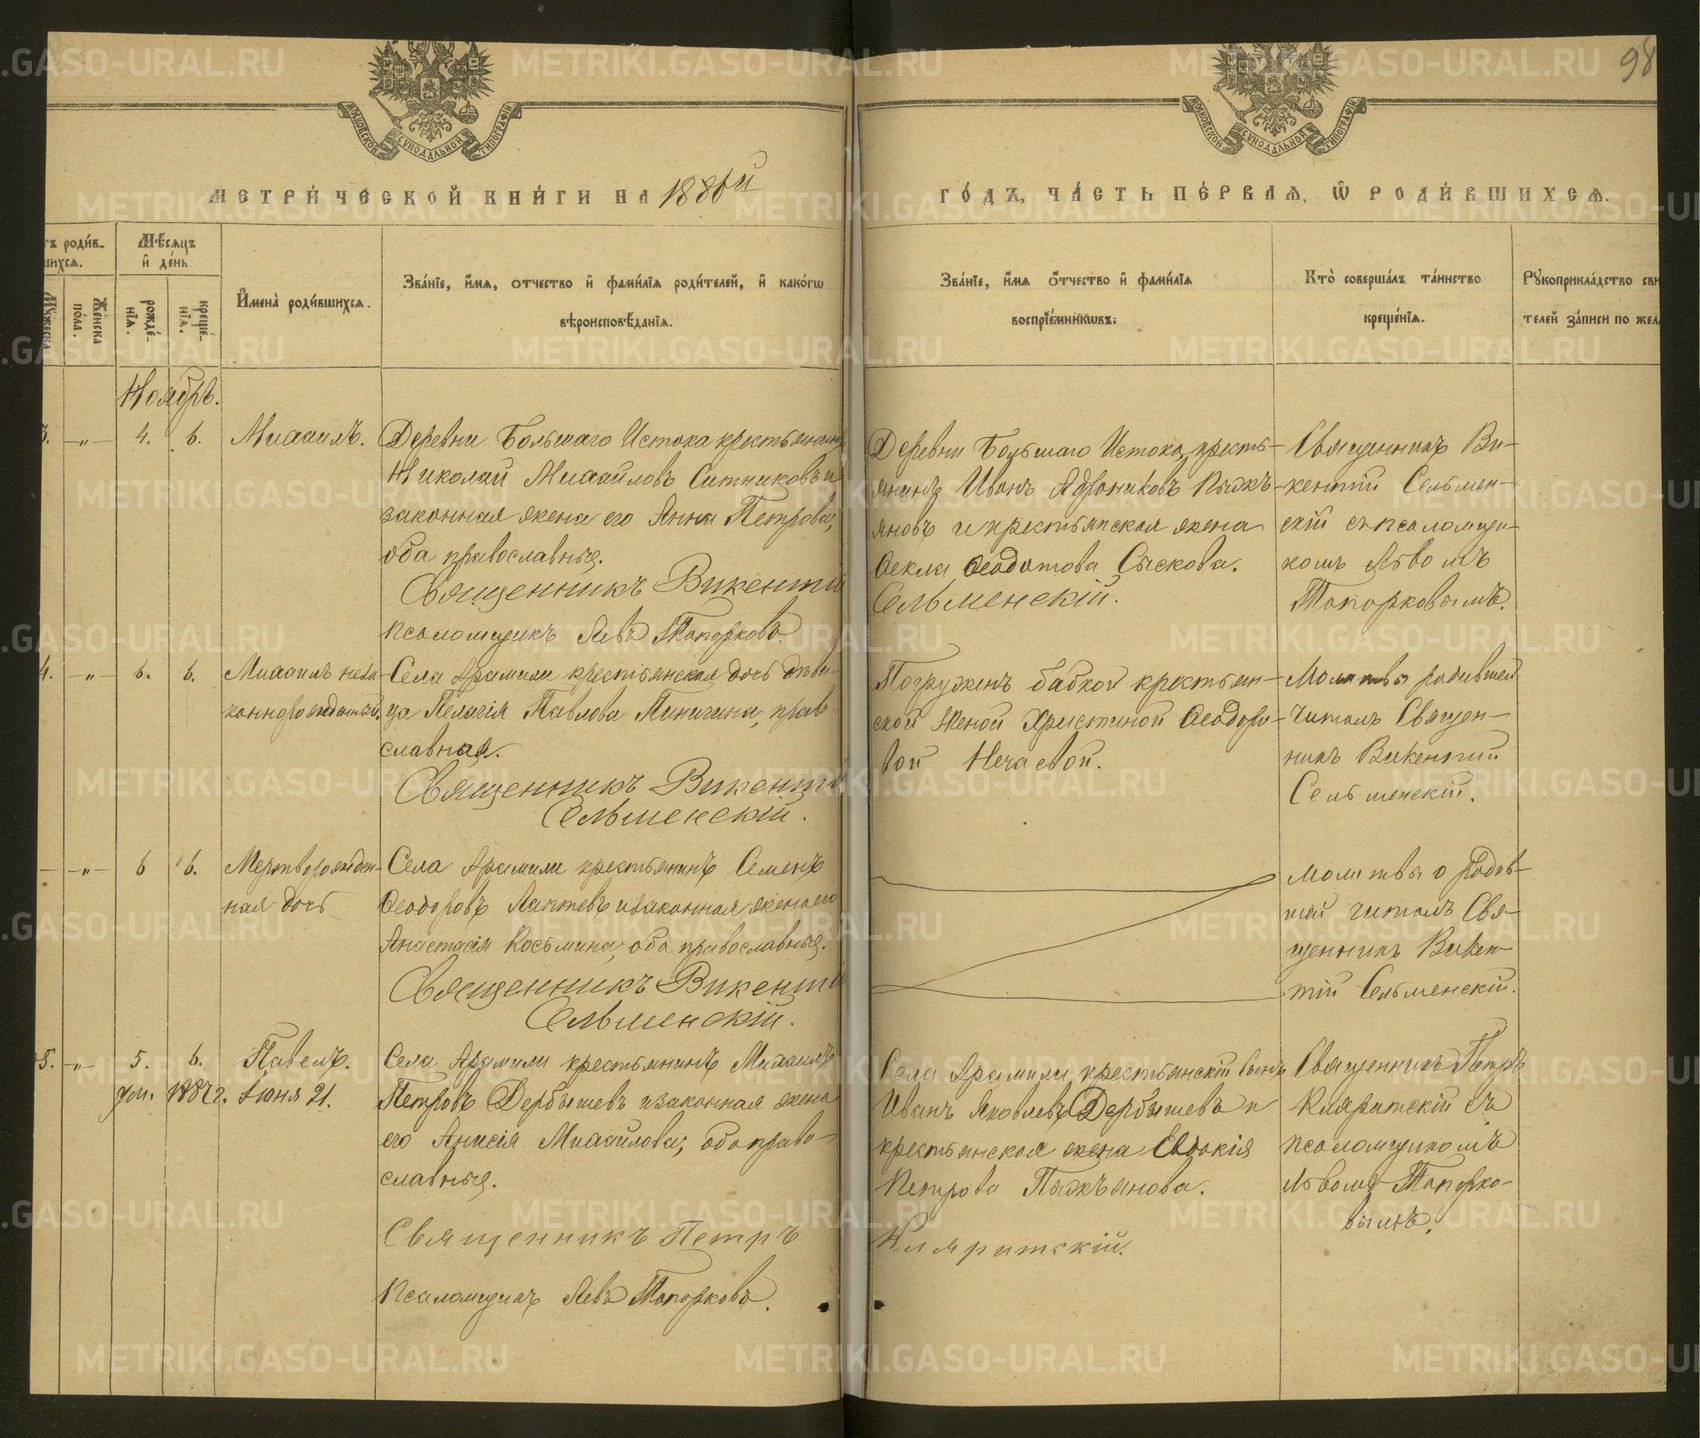 98
МОСКОВСКОЙ СѴНОДАЛЬНОЙ ТИПОГРАФІИ
МОСКОВСКОЙ СѴНОДАЛЬНОЙ ТИПОГРАФІИ
МЕТРИ́ЧЕСКОЙ КНИ́ГИ НА 1886й
ГО́ДЪ, ЧА́СТЬ ПЕ́РВАЯ, Ѽ РОДИ́ВШИХСЯ.
тъ роди́в-
шихся.
Мѣ́сяцъ
и҆ де́нь
Мꙋжеска
Же́нска
по́ла.
рожде́-
нїя.
креще́-
нїя.
И҆мена̀ роди́вшихся.
Зва́нїе, и҆́мя, ѻтчество и҆ фами́лїя роди́телей, и҆ како́гѡ
вѣроисповѣ́данїя.
Зва́нїе, и҆́мя ѻ҆́тчество и҆ фами́лїя
воспрїе́мникѡвъ.
Кто̀ соверша́лъ та́инство
креще́нїя.
Рꙋкоприкла́дство сви
телей за́писи по жел
Ноябрь.
3. -„- 4. 6. Михаилъ.
Деревни Большаго Истока крестьянинъ
Николай Михайловъ Ситниковъ и
законная жена его Анна Петрова,
оба православные.
Священникъ Викентій
Сельменскій.
псаломщикъ Левъ Топорковъ.
Деревни Большаго Истока кресть-
янинъ Иванъ Адрониковъ Пьж-
яновъ и крестьянская жена
Ѳекла Ѳеодотова Сыскова.
Священникъ Ви-
кентій Сельмен-
скій съ псаломщи-
комъ Львомъ
Топорковымъ.
4. -„- 6. 6. Михаилъ неза-
коннорожденный.
Села Арамили крестьянская дочь дѣви-
ца Пелагія Павлова Пиничина, право-
славная.
Священникъ Викентій
Сельменскій.
Погруженъ бабкой крестьян-
ской женой Христиной Ѳеодоро-
вой Нечаевой.
Молитвы родившей
читалъ Священ-
никъ Викентій
Сельменскій.
- -„- 6 6. Мертворожден-
ная дочь
Села Арамили крестьянинъ Семенъ
Ѳеодоровъ Лаптевъ и законная жена его
Анастасія Косьмина, оба православные.
Священникъ Викентій
Сельменскій.
Молитвы родив-
шей читалъ Свя-
щенникъ Викен-
тій Сельменскій.
5. -„- 5. 6. Павелъ.
ум. 1887 г. Іюня 21.
Села Арамили крестьянинъ Михаилъ
Петровъ Дербышевъ и законная жена
его Анисія Михайлова, оба право-
славные.
Священникъ Петръ
Кляритскій.
Псаломщикъ Левъ Топорковъ.
Села Арамили крестьянскій сынъ
Иванъ Яковлевъ Дербышевъ и
крестьянская жена Евдокія
Петрова Пьжъянова.
Священникъ Петръ
Кляритскій съ
псаломщикомъ
Львомъ Топорко-
вымъ.
METRIKI.GASO-URAL.RU